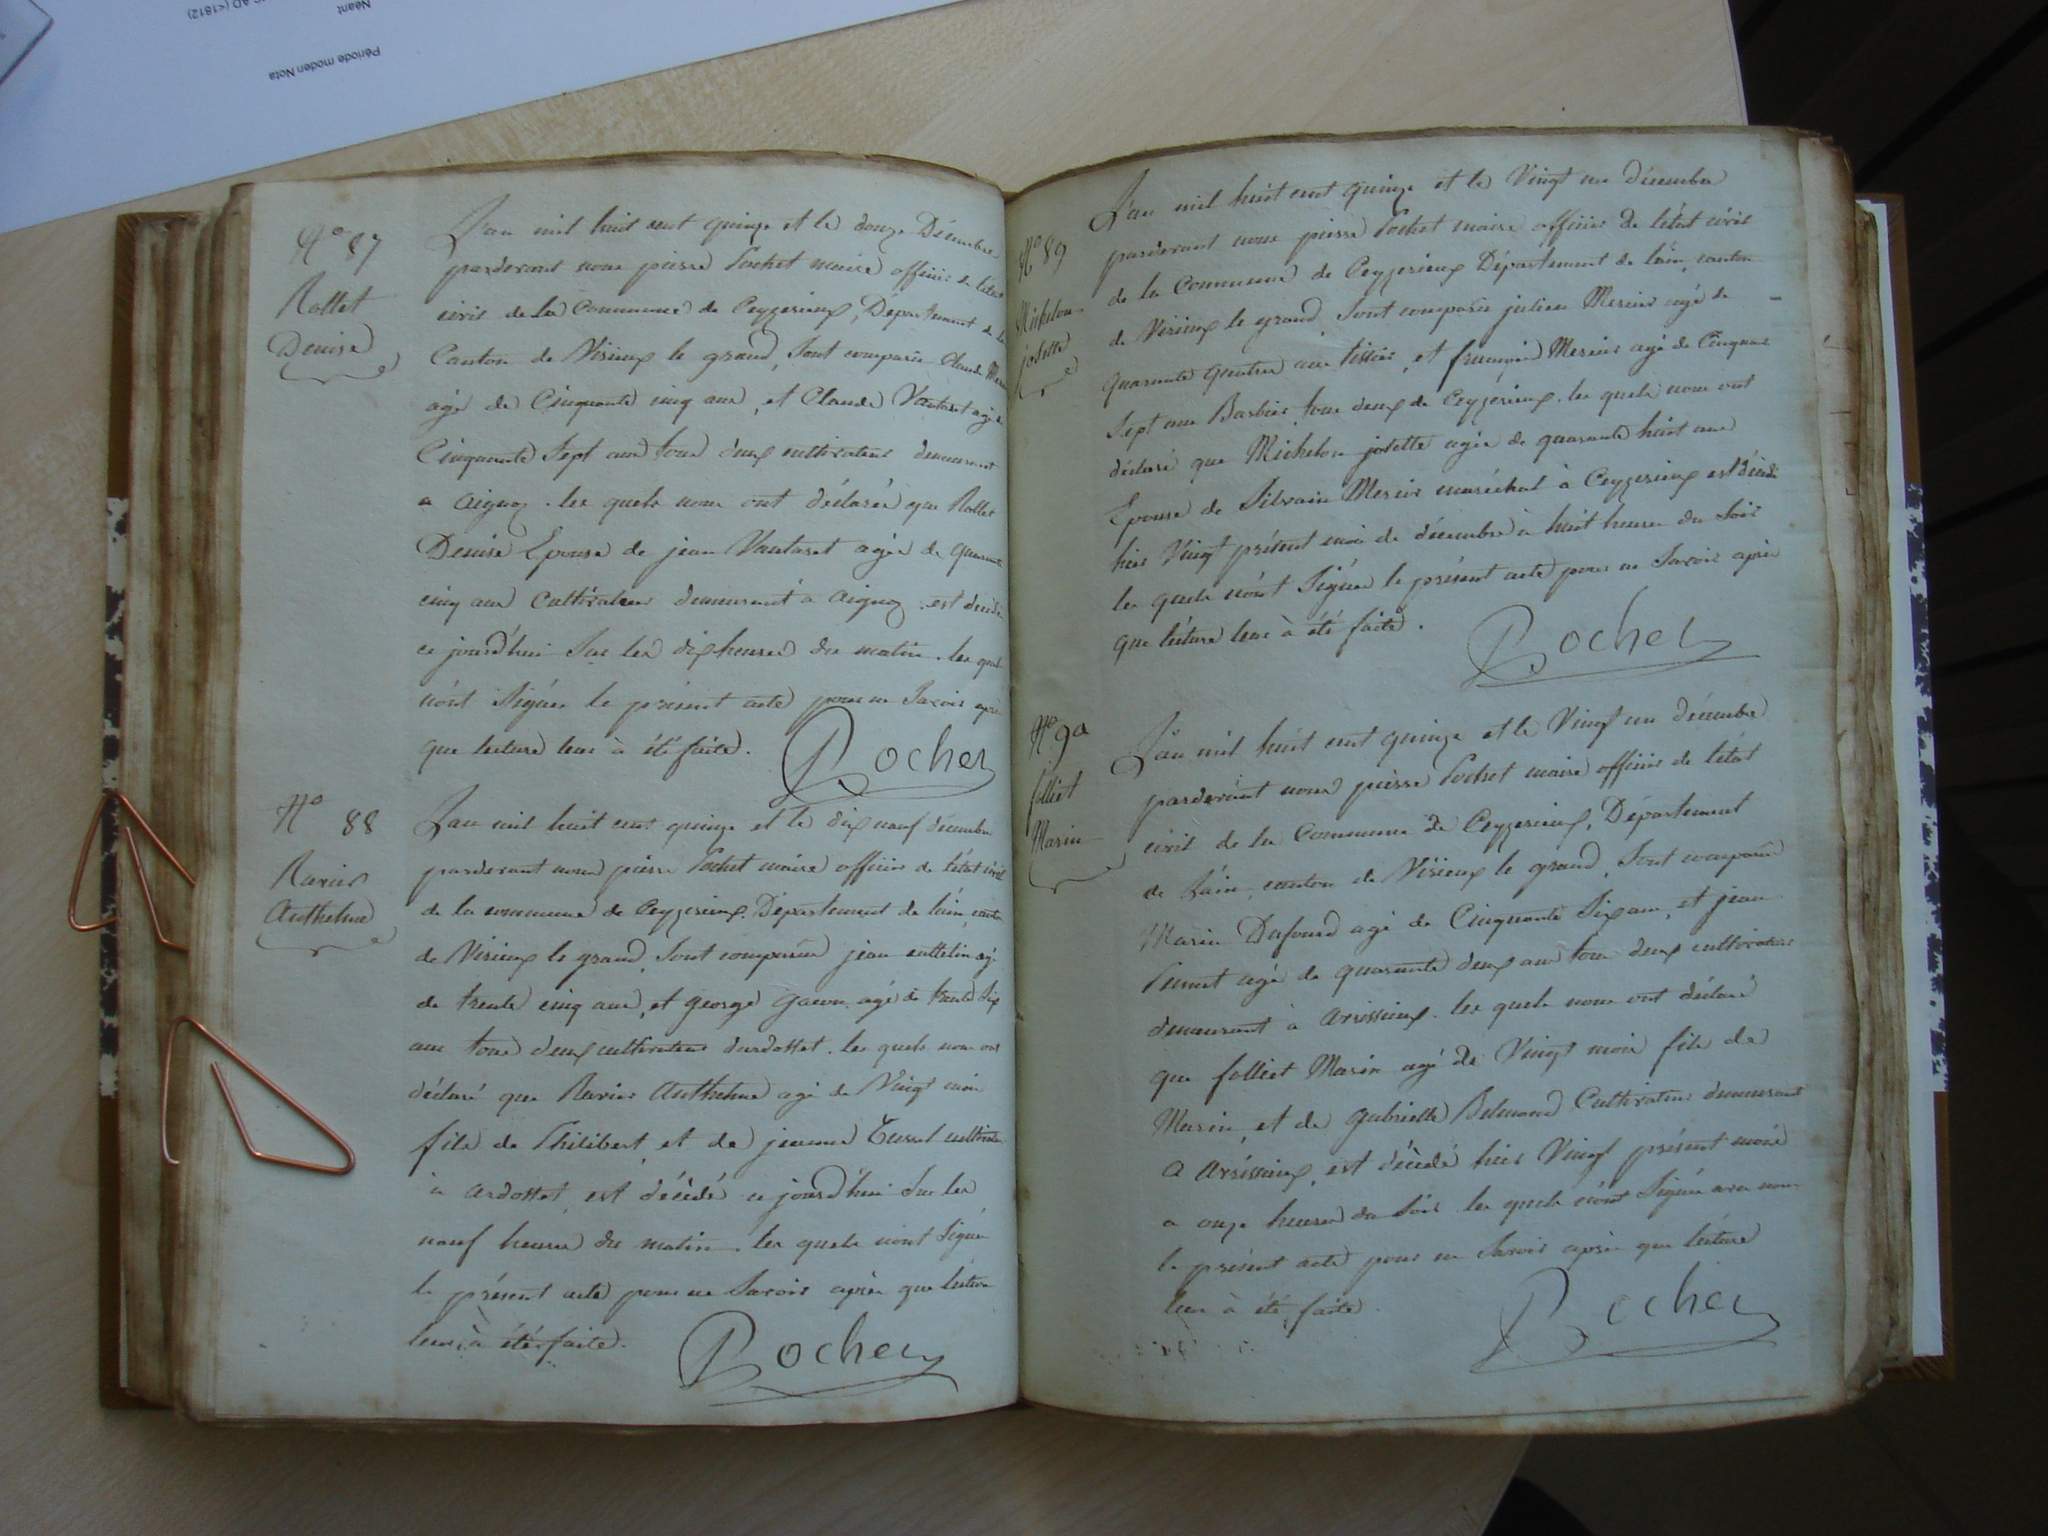 AD (<1812)
Néant
Période moden Nota
N° 87
Rollet
Denise
L'an mil huit cent quinze et le douze Décembre
pardevant nous pierre Pochet maire officier de l'état
civil de la Commune de Ceyzerieux, Département de
Canton de Virieux le grand, Sont comparu Claude
agé de Cinquante cinq ans, et Claude Vautaret agé
Cinquante Sept ans tous deux cultivateur demeurant
a aignoz. les quels nous ont déclarés que Rollet
Denise Epouse de jean Vautaret agée de quarante
cinq ans Cultivateur demeurant à aignoz. est decédé
ce jourd'hui Sur les dix heures du matin. les quels
n'ont Signés le présent acte pour ne Savoir après
que lecture leur à été faite. Pochet
N° 88
Ravier
Anthelme
L'an mil huit cent quinze et le dix neuf décembre
pardevant nous pierre Pochet maire officier de l'état civil
de la commune de Ceyzerieux, Département de l'ain, canton
de Virieux le grand, Sont comparus jean cattelin agé
de trente cinq ans, et george agé de trente Six
ans tous deux cultivateur d'ardosset. les quels nous ont
déclaré que Ravier Anthelme agé de Vingt mois
fils de Philibert, et de jeanne cultivateur
à ardosset, est décédé ce jourd'hui Sur les
neuf heures du matin. les quels n'ont Signés
le présent acte pour ne Savoir après que lecture
leur à été faite. Pochet
N° 89
Michelon
josette
L'an mil huit cent quinze et le Vingt un décembre
pardevant nous pierre Pochet maire officier de l'état civil
de la Commune de Ceyzerieux Département de l'ain, canton
de Virieux le grand, Sont comparu julien Mercier agé de
quarante quatre ans tissier, et françois Mercier agé de Cinquante
Sept ans Barbier tous deux de Ceyzérieux. les quels nous ont
déclaré que Michelon josette agée de quarante huit ans
Epouse de Silvain Mercier maréchal à Ceyzerieux est décédé
hier Vingt présent mois de décembre à huit heures du Soir
les quels n'ont Signés le présent acte pour ne Savoir après
que lecture leur à été faite. Pochet
N° 90
folliet
Marin
L'an mil huit cent quinze et le Vingt un décembre
pardevant nous pierre Pochet maire officier de l'état
civil de la Commune de Ceyzerieux, Département
de L'ain, canton de Virieux le grand, Sont comparu
Marin Dufourd agé de Cinquante Six ans, et jean
agé de quarante deux ans tous deux cultivateur
demeurant à arvissieux. les quels nous ont déclaré
que folliet Marin agé de Vingt mois fils de
Marin, et de gabrielle Cultivateur demeurant
a arvissieux, est décédé hier Vingt présent mois
a onze heures du Soir les quels n'ont Signés avec nous
le présent acte pour ne Savoir après que lecture
leur à été faite. Pochet